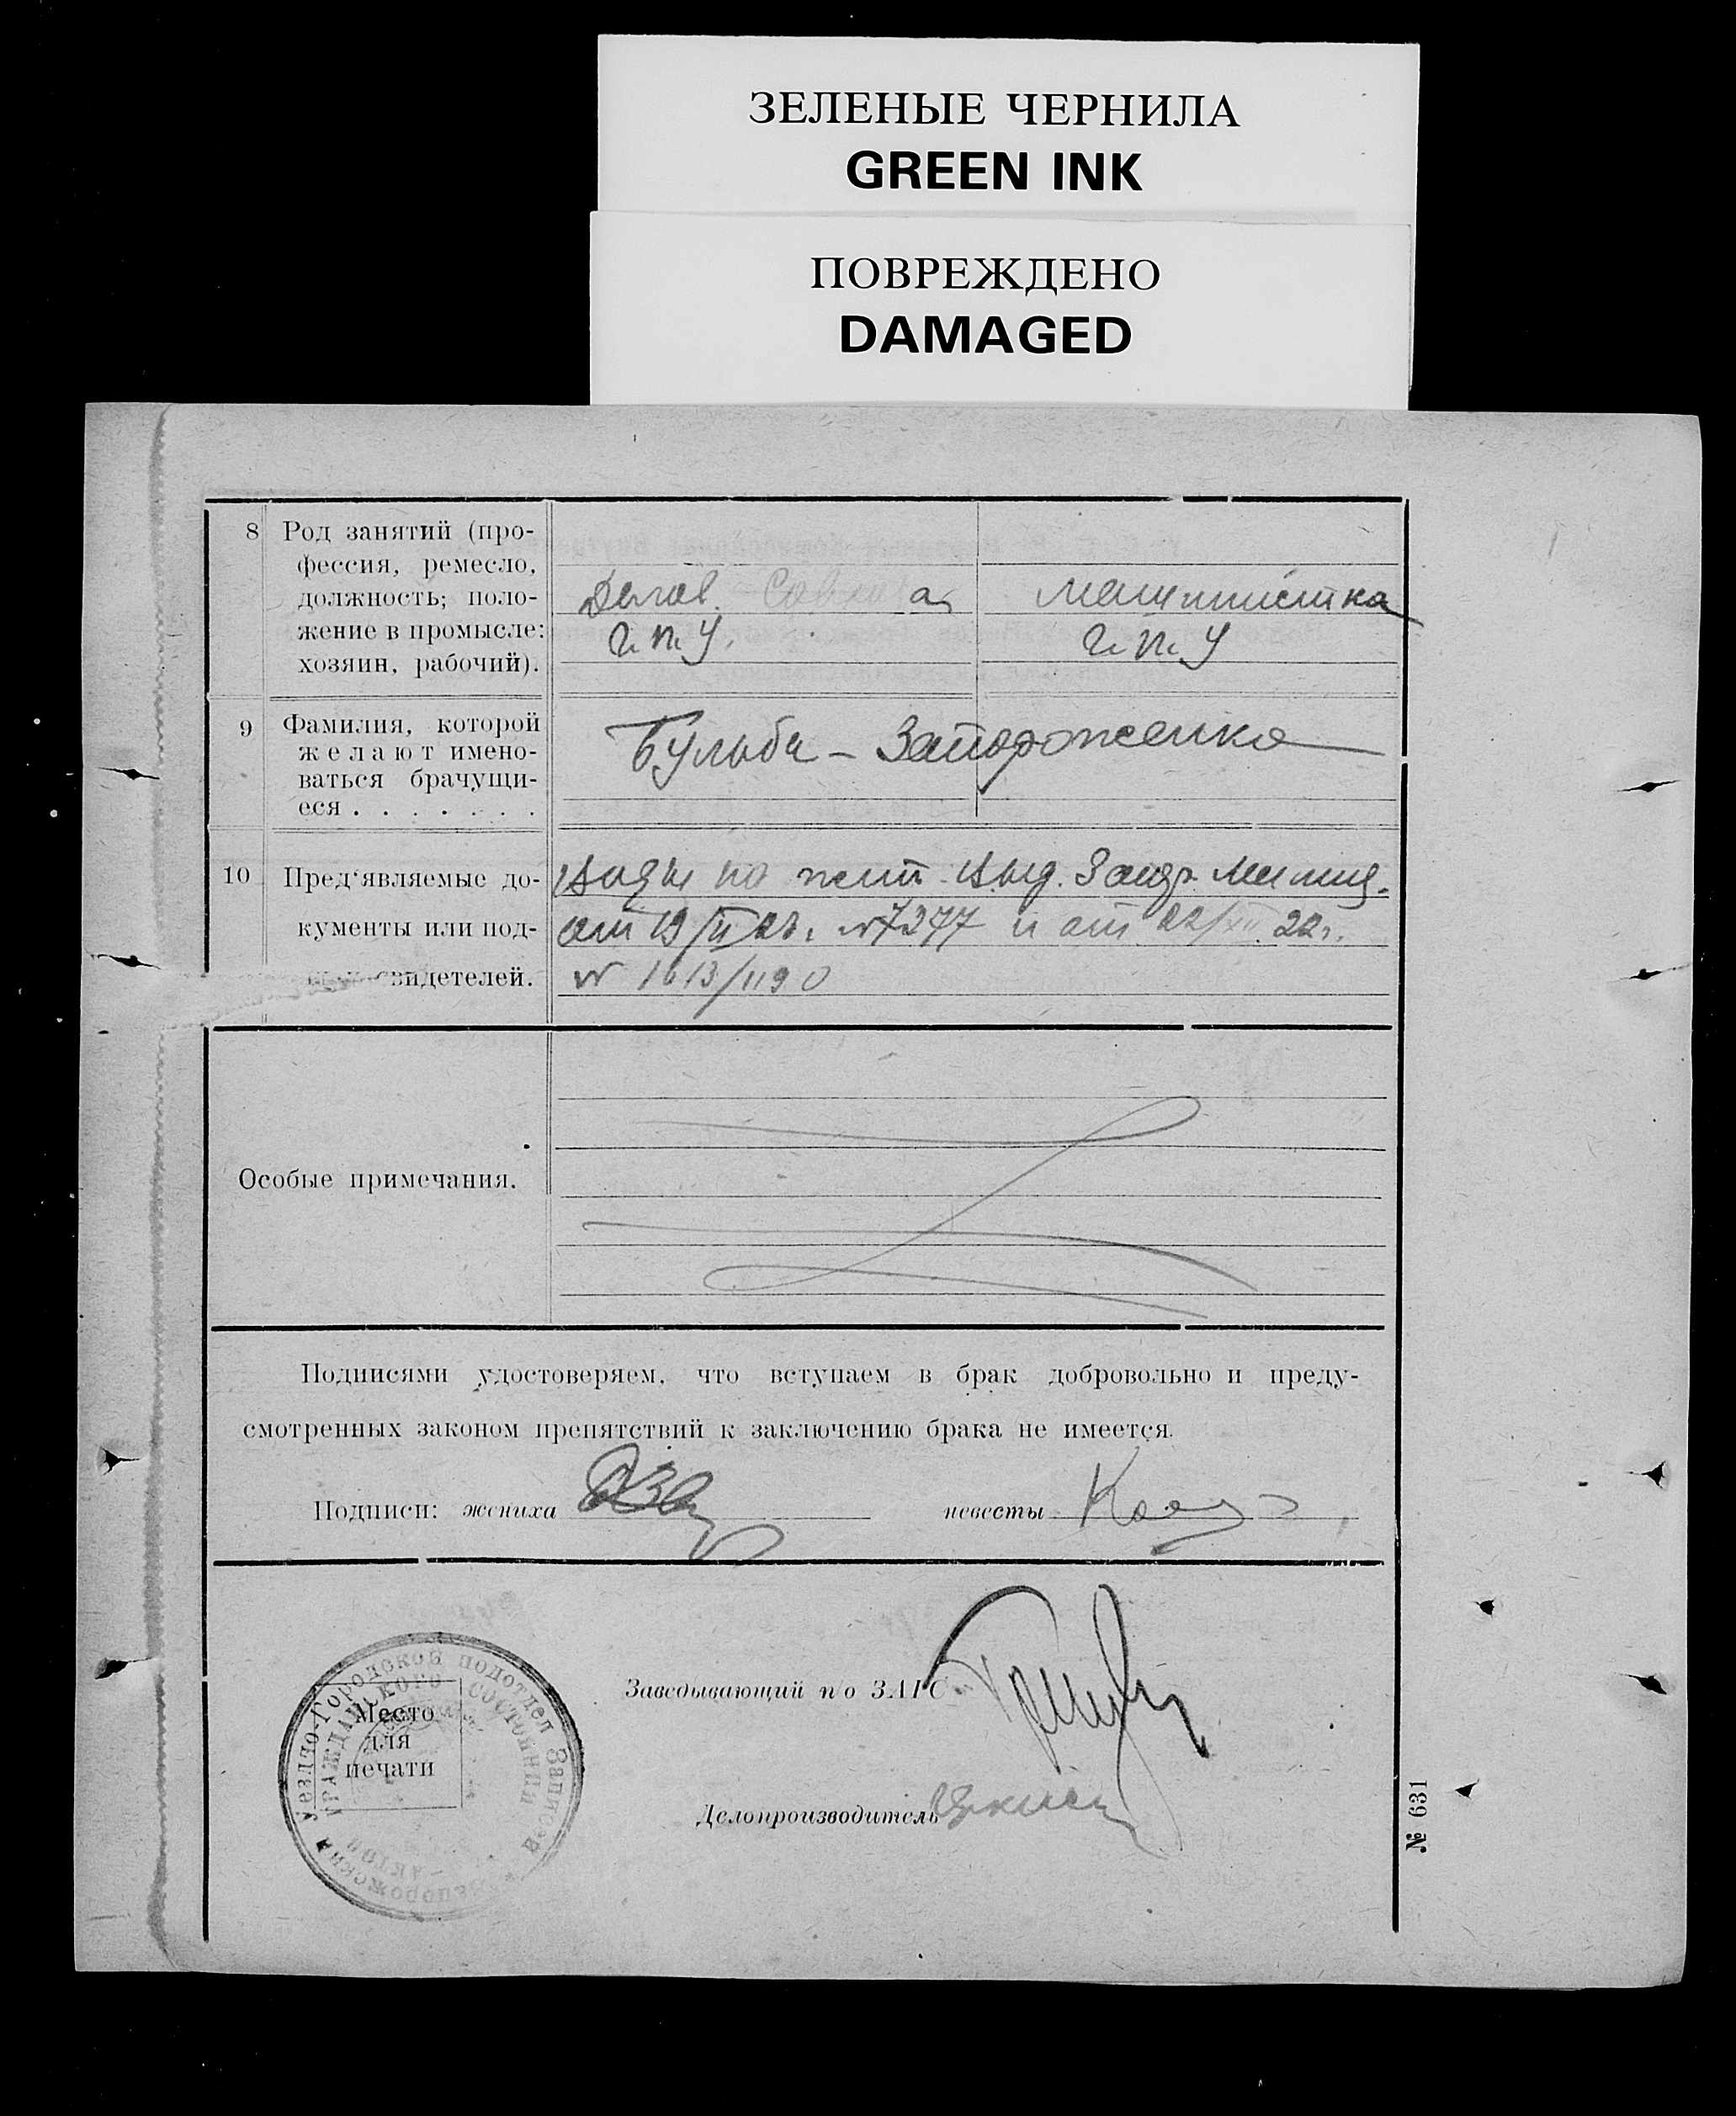 ЗЕЛЕНЫЕ ЧЕРНИЛА
GREEN INK
ПОВРЕЖДЕНО
DAMAGED
8 Род занятий (про-
фессия, ремесло,
должность; поло-
жение в промысле:
хозяин, рабочий).
Г.П.У.
машинистка
Г.П.У
9 Фамилия, которой
желают имено-
ваться брачущи-
еся . . . . . . .
Бульба – Запороженко
10 Пред'являемые до-
кументы или под-
свидетелей.
Виды на жит. Выд. Милиц.
от 19/II 23г. №7277 и от 22/XII 22г.
№ 1613/1190
Особые примечания.
Подписями удостоверяем, что вступаем в брак добровольно и преду-
смотренных законом препятствий к заключению брака не имеется.
Подписи: жениха невесты
Заведывающий п/о ЗАГС
Делопроизводитель
Место
для
печати
Уездно-Городской подотдел Записей
ГРАЖДАНСКОГО СОСТОЯНИЯ
№ 631